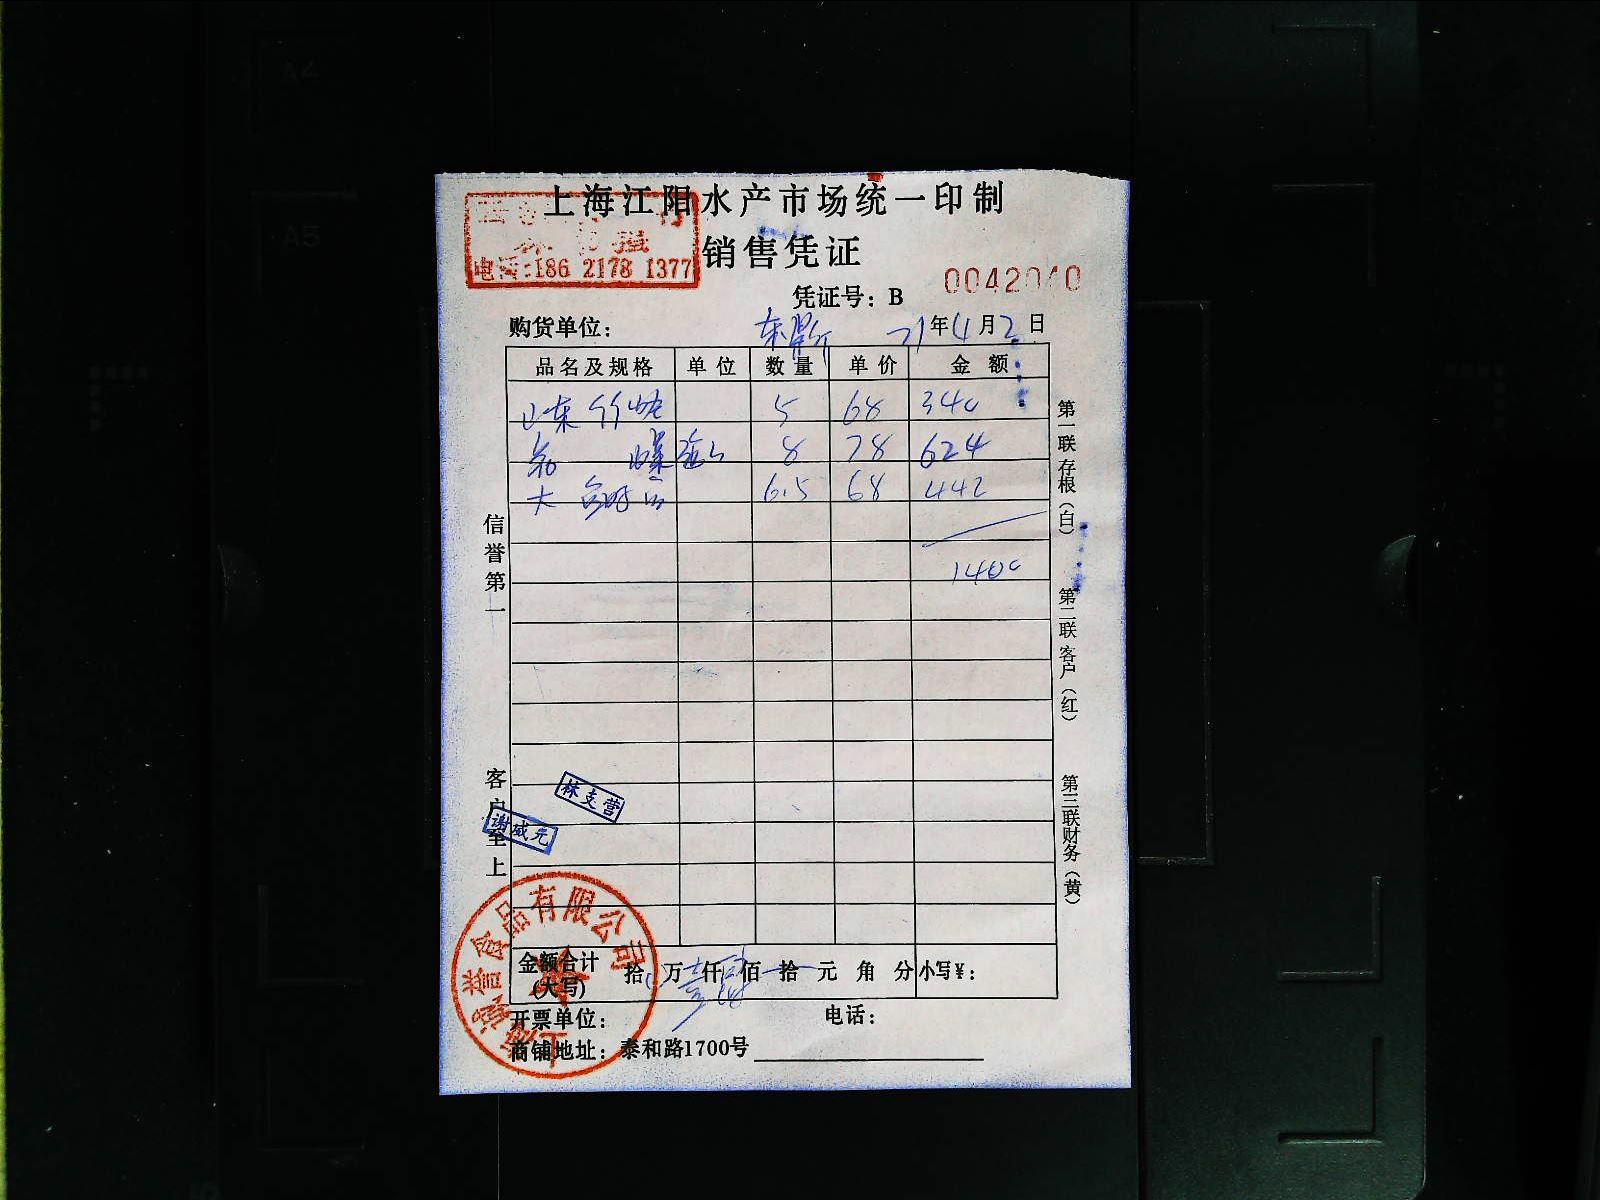 上海江阳水产市场统一印制
销售凭证
电话:186 2178 1377
凭证号:B 0042040
购货单位: 东 21年4月2日
品名及规格 单位 数量 单价 金额
山东竹蛏 5 68 340
8 78 624
大 6.5 68 442
1400
信誉第一
客户至上
第一联存根(白)
第二联客户(红)
第三联财务(黄)
林支营
谢威元
金额合计(大写) 拾 万 仟 佰 拾 元 角 分 小写¥:
开票单位: 电话:
商铺地址:泰和路1700号
誉食品有限公司